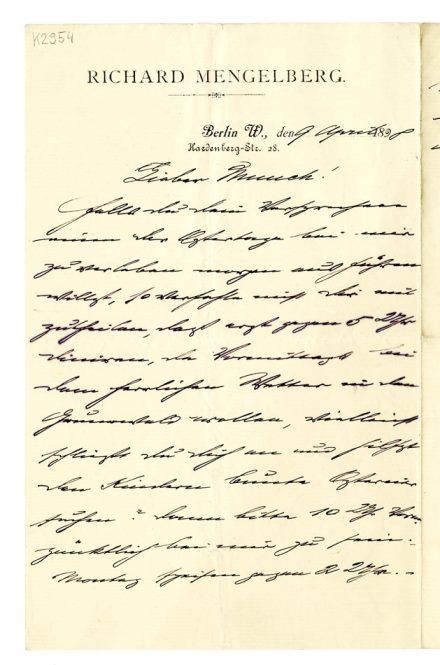 K2954
RICHARD MENGELBERG.
Berlin W., den 9 April 1898
Hardenberg-Str. 28.
Lieber Munch!
falls du dein Versprechen
einen der Ostertage bei mir
zu verleben morgen ausführen
willst, so verfehle nicht dir mit
zutheilen, dass erst gegen 5 Uhr
diniren, da Vormittags bei
dem herrlichen Wetter in den
Grunewald wollen, vielleicht
schliesst du dich an und hilfst
den Kindern bunte Ostereier
suchen? Dann bitte 10 Uhr Vorm.
pünktlich bei mir zu sein.
Montag speisen gegen 2 Uhr. –